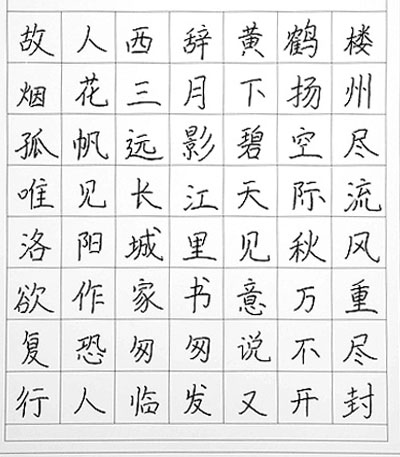 故人西辞黄鹤楼
烟花三月下扬州
孤帆远影碧空尽
唯见长江天际流
洛阳城里见秋风
欲作家书意万重
复恐匆匆说不尽
行人临发又开封